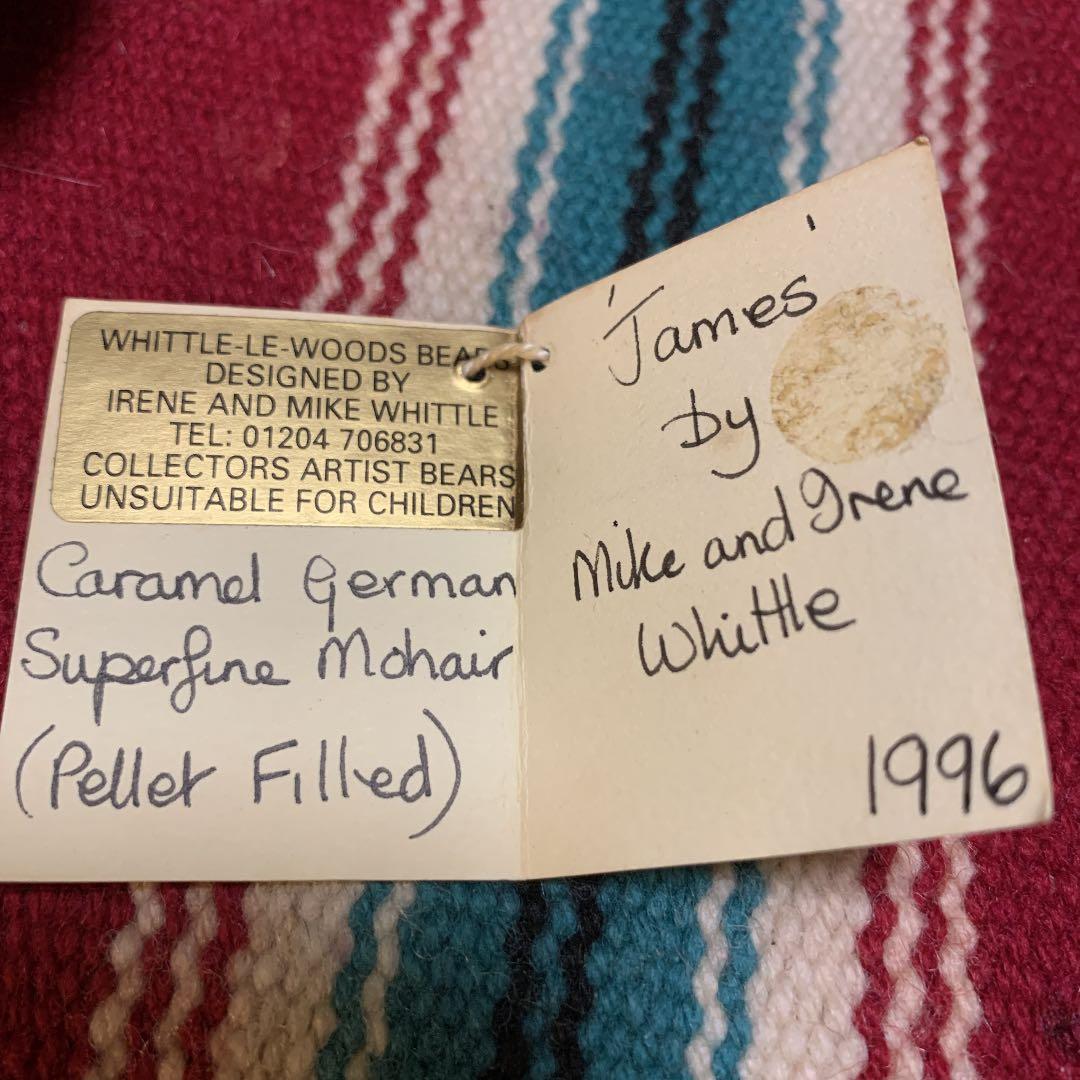 WHITTLE-LE-WOODS BEARS
DESIGNED BY
IRENE AND MIKE WHITTLE
TEL: 01204 706831
COLLECTORS ARTIST BEARS
UNSUITABLE FOR CHILDREN
Caramel German
Superfine Mohair
(Pellet Filled)
'James'
by
Mike and Irene
Whittle
1996